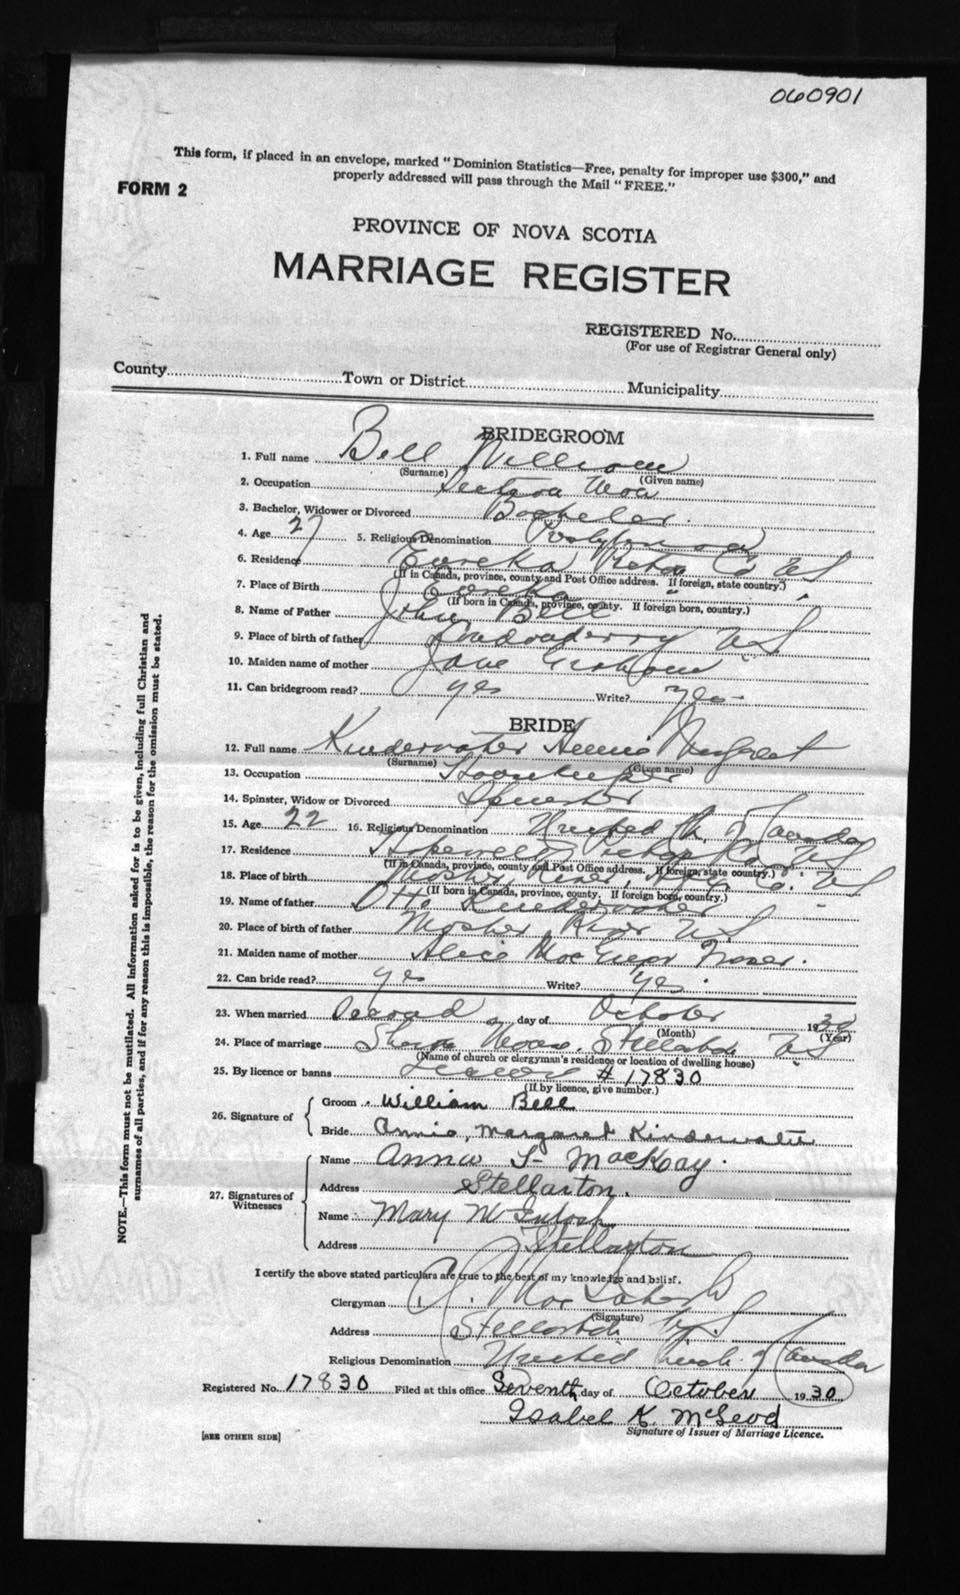 060901
This form, if placed in an envelope, marked "Dominion Statistics—Free, penalty for improper use $300," and
properly addressed will pass through the Mail "FREE."
FORM 2
PROVINCE OF NOVA SCOTIA
MARRIAGE REGISTER
REGISTERED No.
(For use of Registrar General only)
County Town or District Municipality
BRIDEGROOM
1. Full name Bell William
(Surname) (Given name)
2. Occupation Section Man
3. Bachelor, Widower or Divorced Bachelor.
4. Age 27 5. Religious Denomination Presbyterian
6. Residence Eureka Pictou Co NS
(If in Canada, province, county and Post Office address. If foreign, state country.)
7. Place of Birth Eureka " "
(If born in Canada, province, county. If foreign born, country.)
8. Name of Father John Bell
9. Place of birth of father Londonderry NS
10. Maiden name of mother Jane Graham
11. Can bridegroom read? yes Write? yes
BRIDE
12. Full name Kinderwater Annie Margaret
(Surname) (Given name)
13. Occupation Housekeeper
14. Spinster, Widow or Divorced Spinster
15. Age 22 16. Religious Denomination United Ch. of Canada
17. Residence Hopewell Pictou Co. NS
(If in Canada, province, county and Post Office address. If foreign, state country.)
18. Place of birth Mosher River, Co. NS
(If born in Canada, province, county. If foreign born, country.)
19. Name of father Otto Kinderwater
20. Place of birth of father Mosher River NS
21. Maiden name of mother Alice MacGregor Fraser.
22. Can bride read? yes Write? yes
23. When married Second day of October 1930
(Month) (Year)
24. Place of marriage Manse, Stellarton NS
(Name of church or clergyman's residence or location of dwelling house)
25. By licence or banns License # 17830
(If by licence, give number.)
26. Signature of
Groom William Bell
Bride Annie, Margaret Kinderwater
27. Signatures of Witnesses
Name Anna S. MacKay.
Address Stellarton.
Name Mary McIntosh
Address Stellarton
I certify the above stated particulars are true to the best of my knowledge and belief.
Clergyman
(Signature)
Address Stellarton N.S.
Religious Denomination United Church of Canada
Registered No. 17830 Filed at this office Seventh day of October 1930
Isabel K. McLeod
Signature of Issuer of Marriage Licence.
[SEE OTHER SIDE]
NOTE.—This form must not be mutilated. All information asked for is to be given, including full Christian and
surnames of all parties, and if for any reason this is impossible, the reason for the omission must be stated.